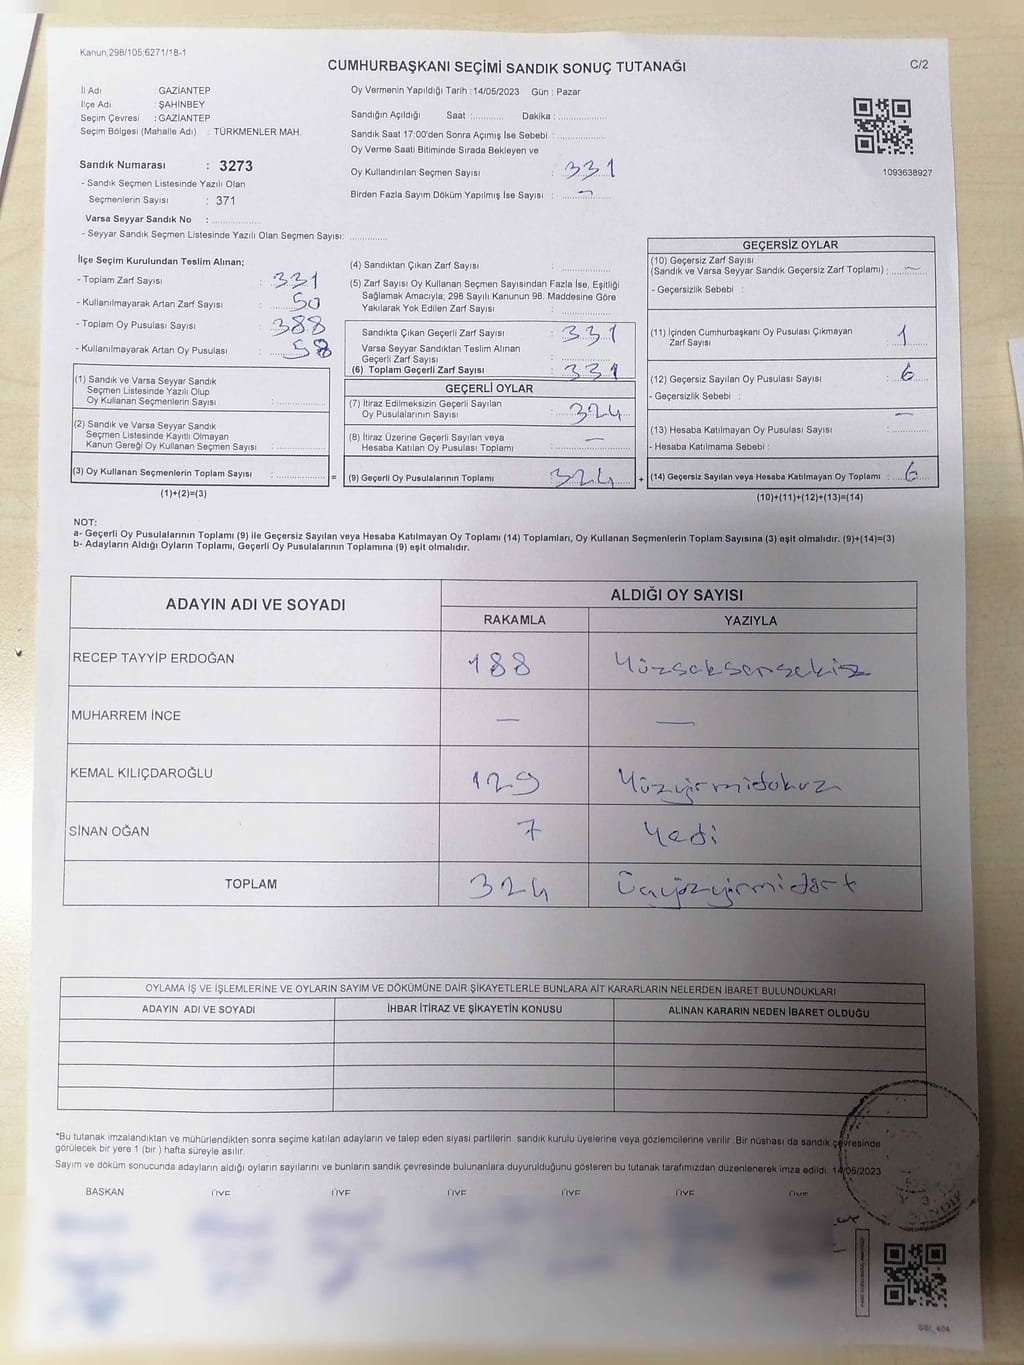 Kanun,298/105;6271/18-1
CUMHURBAŞKANI SEÇİMİ SANDIK SONUÇ TUTANAĞI
C/2
İl Adı : GAZİANTEP
İlçe Adı : ŞAHİNBEY
Seçim Çevresi : GAZİANTEP
Seçim Bölgesi (Mahalle Adı) : TÜRKMENLER MAH.
Sandık Numarası : 3273
- Sandık Seçmen Listesinde Yazılı Olan
Seçmenlerin Sayısı : 371
Varsa Seyyar Sandık No : ..................
- Seyyar Sandık Seçmen Listesinde Yazılı Olan Seçmen Sayısı: ..............
Oy Vermenin Yapıldığı Tarih : 14/05/2023 Gün : Pazar
Sandığın Açıldığı Saat :............ Dakika :..................
Sandık Saat 17:00'den Sonra Açımış İse Sebebi :..................
Oy Verme Saati Bitiminde Sırada Bekleyen ve
Oy Kullandırılan Seçmen Sayısı : 331
Birden Fazla Sayım Döküm Yapılmış İse Sayısı : —
1093638927
İlçe Seçim Kurulundan Teslim Alınan;
- Toplam Zarf Sayısı : 331
- Kullanılmayarak Artan Zarf Sayısı : 50
- Toplam Oy Pusulası Sayısı : 388
- Kullanılmayarak Artan Oy Pusulası : 58
(1) Sandık ve Varsa Seyyar Sandık
Seçmen Listesinde Yazılı Olup
Oy Kullanan Seçmenlerin Sayısı :..................
(2) Sandık ve Varsa Seyyar Sandık
Seçmen Listesinde Kayıtlı Olmayan
Kanun Gereği Oy Kullanan Seçmen Sayısı :..................
(3) Oy Kullanan Seçmenlerin Toplam Sayısı :.................. =
(1)+(2)=(3)
(4) Sandıktan Çıkan Zarf Sayısı :..................
(5) Zarf Sayısı Oy Kullanan Seçmen Sayısından Fazla İse, Eşitliği
Sağlamak Amacıyla; 298 Sayılı Kanunun 98. Maddesine Göre
Yakılarak Yok Edilen Zarf Sayısı :..................
Sandıkta Çıkan Geçerli Zarf Sayısı : 331
Varsa Seyyar Sandıktan Teslim Alınan
Geçerli Zarf Sayısı :..................
(6) Toplam Geçerli Zarf Sayısı : 331
GEÇERLİ OYLAR
(7) İtiraz Edilmeksizin Geçerli Sayılan
Oy Pusulalarının Sayısı : 324
(8) İtiraz Üzerine Geçerli Sayılan veya
Hesaba Katılan Oy Pusulası Toplamı : —
(9) Geçerli Oy Pusulalarının Toplamı : 324 +
GEÇERSİZ OYLAR
(10) Geçersiz Zarf Sayısı
(Sandık ve Varsa Seyyar Sandık Geçersiz Zarf Toplamı) : —
- Geçersizlik Sebebi :
(11) İçinden Cumhurbaşkanı Oy Pusulası Çıkmayan
Zarf Sayısı : 1
(12) Geçersiz Sayılan Oy Pusulası Sayısı : 6
- Geçersizlik Sebebi :
(13) Hesaba Katılmayan Oy Pusulası Sayısı : —
- Hesaba Katılmama Sebebi :
(14) Geçersiz Sayılan veya Hesaba Katılmayan Oy Toplamı : 6
(10)+(11)+(12)+(13)=(14)
NOT:
a- Geçerli Oy Pusulalarının Toplamı (9) ile Geçersiz Sayılan veya Hesaba Katılmayan Oy Toplamı (14) Toplamları, Oy Kullanan Seçmenlerin Toplam Sayısına (3) eşit olmalıdır. (9)+(14)=(3)
b- Adayların Aldığı Oyların Toplamı, Geçerli Oy Pusulalarının Toplamına (9) eşit olmalıdır.
ADAYIN ADI VE SOYADI
ALDIĞI OY SAYISI
RAKAMLA YAZIYLA
RECEP TAYYİP ERDOĞAN 188 Yüzseksensekiz
MUHARREM İNCE — —
KEMAL KILIÇDAROĞLU 129 Yüzyirmidokuz
SİNAN OĞAN 7 Yedi
TOPLAM 324 Üçyüzyirmidört
OYLAMA İŞ VE İŞLEMLERİNE VE OYLARIN SAYIM VE DÖKÜMÜNE DAİR ŞİKAYETLERLE BUNLARA AİT KARARLARIN NELERDEN İBARET BULUNDUKLARI
ADAYIN ADI VE SOYADI İHBAR İTİRAZ VE ŞİKAYETİN KONUSU ALINAN KARARIN NEDEN İBARET OLDUĞU
*Bu tutanak imzalandıktan ve mühürlendikten sonra seçime katılan adayların ve talep eden siyasi partilerin sandık kurulu üyelerine veya gözlemcilerine verilir. Bir nüshası da sandık çevresinde
görülecek bir yere 1 (bir ) hafta süreyle asılır.
Sayım ve döküm sonucunda adayların aldığı oyların sayılarını ve bunların sandık çevresinde bulunanlara duyurulduğunu gösteren bu tutanak tarafımızdan düzenlenerek imza edildi. 14/05/2023
BAŞKAN ÜYE ÜYE ÜYE ÜYE ÜYE ÜYE